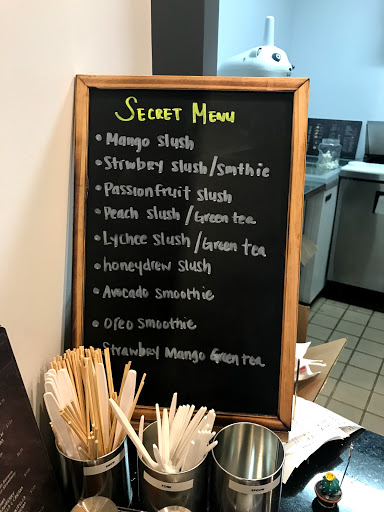 SECRET MENU
• Mango slush
• Strwbry slush/smthie
• Passionfruit slush
• Peach slush/Green tea
• Lychee slush/Green tea
• honeydrew slush
• Avocado smoothie
• Oreo smoothie
Strawbry Mango Green tea